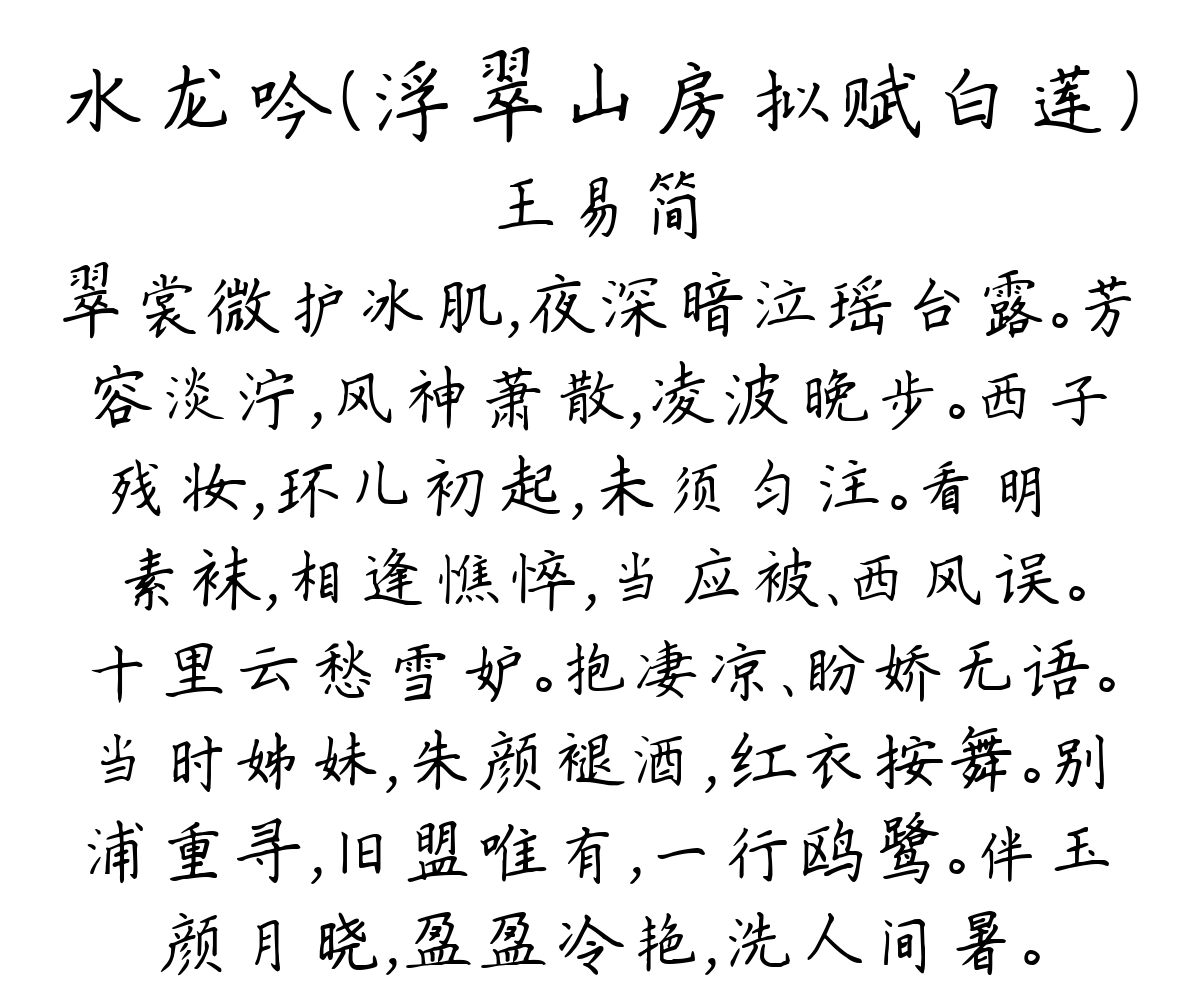 水龙吟(浮翠山房拟赋白莲)
王易简
翠裳微护冰肌,夜深暗泣瑶台露。芳
容淡泞,风神萧散,凌波晚步。西子
残妆,环儿初起,未须匀注。看明
素袜,相逢憔悴,当应被、西风误。
十里云愁雪妒。抱凄凉、盼娇无语。
当时姊妹,朱颜褪酒,红衣按舞。别
浦重寻,旧盟唯有,一行鸥鹭。伴玉
颜月晓,盈盈冷艳,洗人间暑。